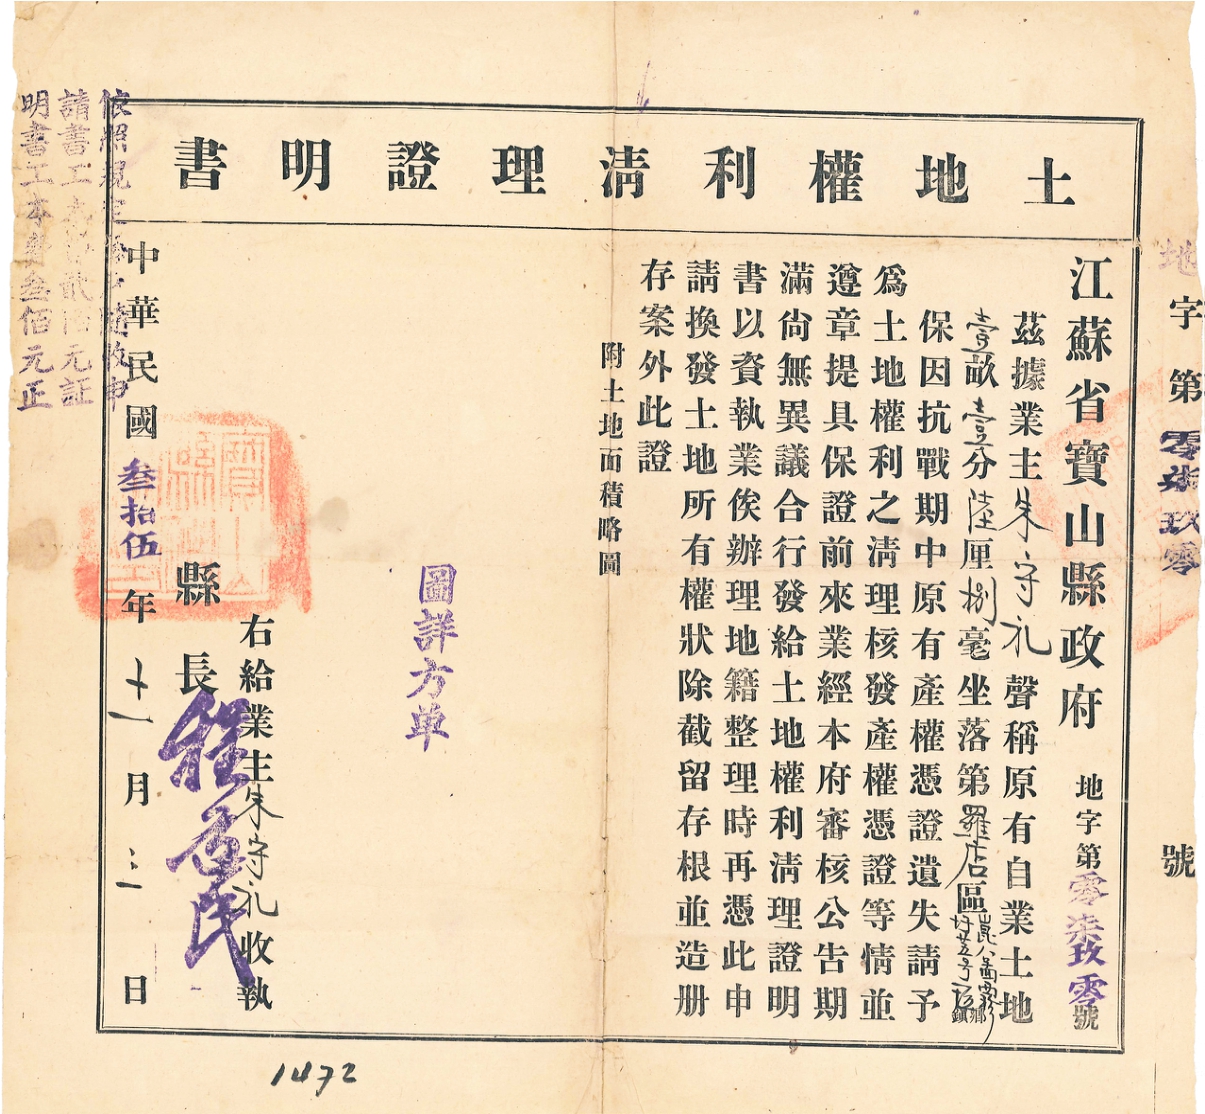 土地權利清理證明書
地字第零柒玖零號
江蘇省寶山縣政府 地字第零柒玖零號
茲據業主朱守礼聲稱原有自業土地
壹畝壹分陸厘捌毫坐落第羅店區 鄉鎮
保因抗戰期中原有產權憑證遺失請予
爲土地權利之清理核發產權憑證等情並
遵章提具保證前來業經本府審核公告期
滿尙無異議合行發給土地權利清理證明
書以資執業俟辦理地籍整理時再憑此申
請換發土地所有權狀除截留存根並造册
存案外此證
附土地面積略圖
圖詳方单
右給業主朱守礼收執
縣長程 民
中華民國叁拾伍年十一月三日
依照規定 收申
請書工 貳 元証
明書工本費叁佰元正
1472